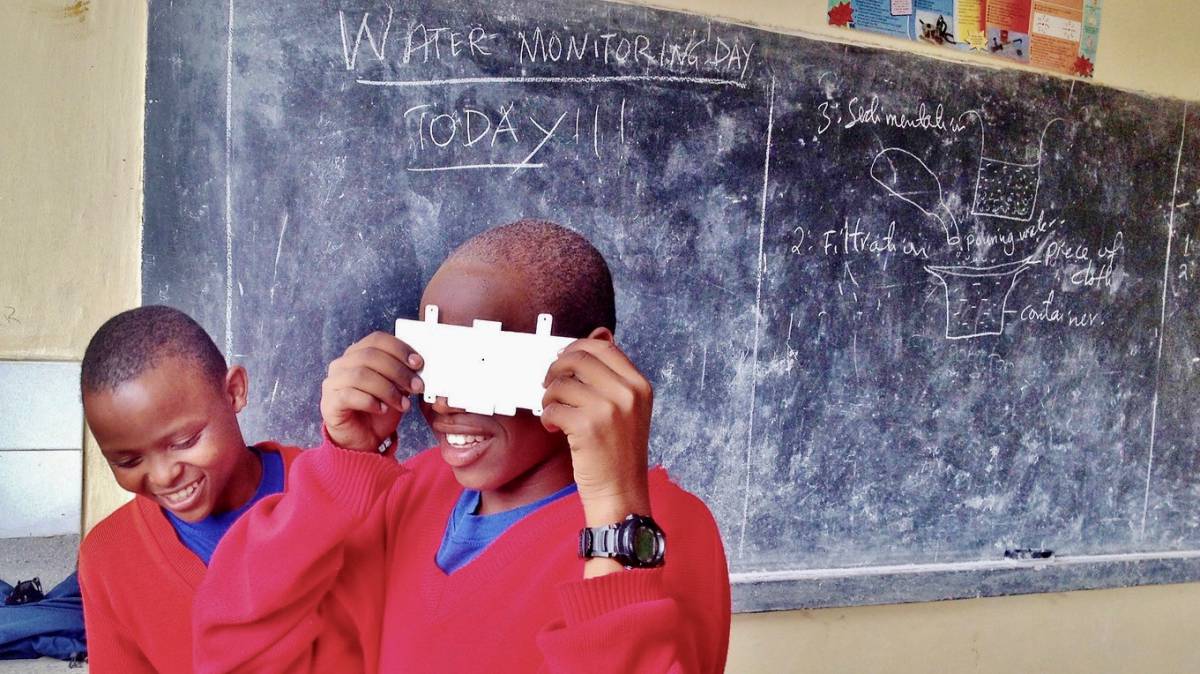 WATER MONITORING DAY
TODAY!!!
3: Sedimentation
2: Filtration
pouring water
piece of
cloth
container.